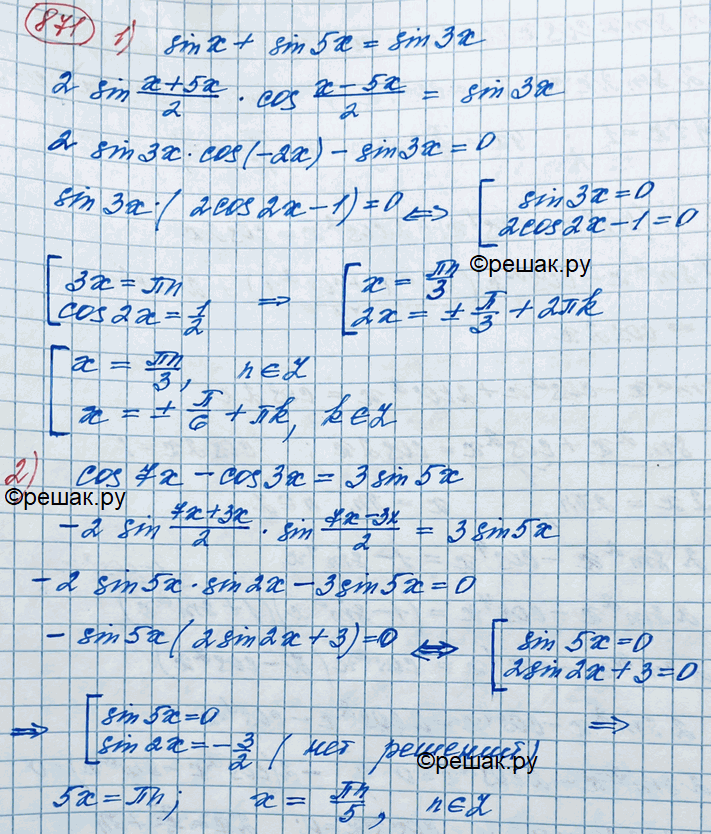 871 1) sin x + sin 5x = sin 3x
2 sin (x+5x)/2 · cos (x−5x)/2 = sin 3x
2 sin 3x · cos(−2x) − sin 3x = 0
sin 3x · (2cos 2x − 1) = 0 ⇔ [ sin 3x = 0
2cos 2x − 1 = 0
[ 3x = πn ⇒ [ x = πn/3
cos 2x = 1/2 2x = ± π/3 + 2πk
©решак.ру
[ x = πn/3, n ∈ Z
x = ± π/6 + πk, k ∈ Z
2) cos 7x − cos 3x = 3 sin 5x
©решак.ру
−2 sin (7x+3x)/2 · sin (7x−3x)/2 = 3 sin 5x
−2 sin 5x · sin 2x − 3 sin 5x = 0
− sin 5x (2 sin 2x + 3) = 0 ⇔ [ sin 5x = 0
2 sin 2x + 3 = 0
⇒ [ sin 5x = 0 ⇒
sin 2x = − 3/2 (нет решений)
©решак.ру
5x = πn; x = πn/5, n ∈ Z